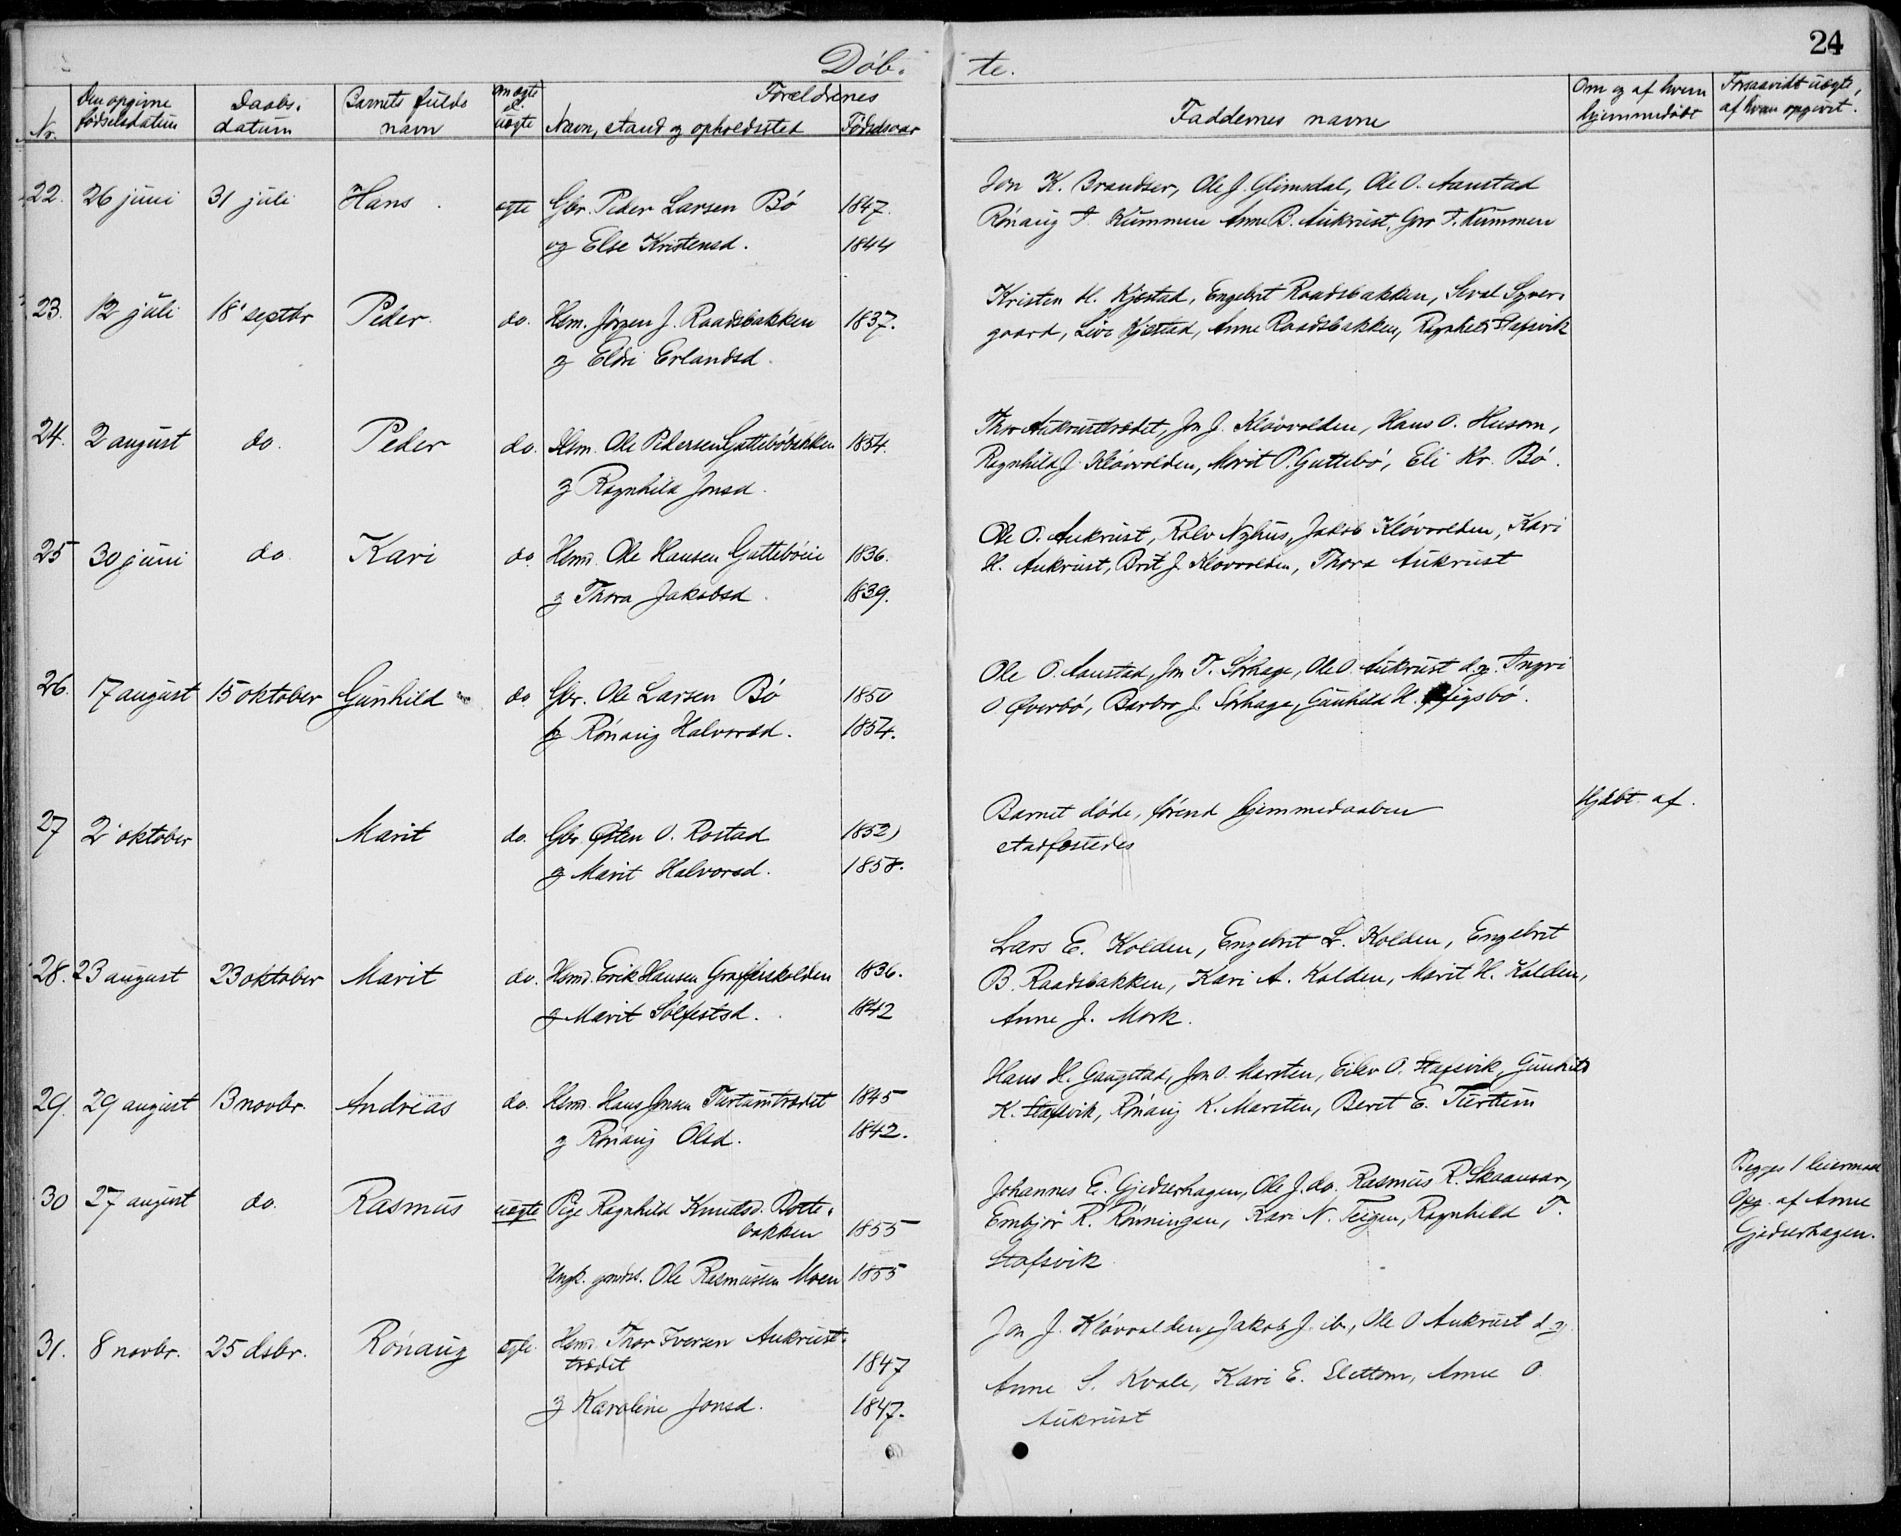 24
Døb. te.
Nr. Den opgivne fødselsdatum Daabs. datum Barnets fulde navn Om ægte el. uægte Forældrenes Navn, stand og opholdssted Fødselsaar Faddernes navne Om og af hvem hjemmedøbt Forsaavidt uægte, af hvem opgivet.
22. 26 juni 31 juli Hans. ægte Gbr. Peder Larsen Bø 1847. Jon K. Brandser, Ole J. Glimsdal, Ole O. Aanstad
og Else Kristensd. 1844 Rønaug T. Kummen Anne B. Aukrust, Gro T. Kummen
23. 12 juli 18 septbr Peder. do. Hsm. Jørgen J. Raadsbakken 1837. Kristen H. Kjestad, Engebrit Raadsbakken, Sival Syver-
og Eldri Erlandsd. gaard, Live Kjestad, Anne Raadsbakken, Ragnhild Stafsvik
24. 2 august do. Peder do. Hsm. Ole Pedersen Guttebøbakken 1854. Thor Aukrusttrædet, Jon J. Kløvvolden, Hans O. Husom,
og Ragnhild Jonsd. Ragnhild J. Kløvvolden, Marit P. Guttebø, Eli Kr. Bø.
25 30 juni do. Kari do. Hsmd. Ole Hansen Guttebøeie 1836. Ole O. Aukrust, Rolv Nyhus, Jakob Kløvvolden, Kari
og Thora Jakobsd. 1839. H. Aukrust, Brit J. Kløvvolden, Thora Aukrust
26. 17 august 15 oktober Gunhild do Gbr. Ole Larsen Bø 1850 Ole O. Aanstad, Jon T. Sørhage, Ole O. Aukrust d.y. Ingri
og Rønaug Halvorsd. 1854. O Øverbø, Barbro J. Sørhage, Gunhild H. Sigsbø.
27 2 oktober Marit do. Gbr. Østen O. Rostad 1852) Barnet døde, førend hjemmedaaben Hjdbt. af.
og Marit Halvorsd. 1858. stadfæstedes
28. 23 august 23 oktober Marit do. Hsmd. Erik Hansen Grafferskolden 1836. Lars E. Kolden, Engebrit L. Kolden, Engebrit
og Marit Sølfestsd. 1842 B. Raadsbakken, Kari A. Kolden, Marit H. Kolden,
Anne J. Mork.
29. 29 august 13 novbr. Andreas do. Hsmd. Hans Jonsen Turtumtrædet 1845 Hans H. Gaugstad, Jon O. Marsten, Eilev O. Stafsvik, Gunhild
og Rønaug Olsd. 1842. K. Stafsvik, Rønaug K. Marsten, Berit E. Turtum
30 27 august do. Rasmus uægte Pige Ragnhild Knudsd. Botte- Johannes E. Gjedserhagen, Ole J. do. Rasmus R. Skaansar, Begges 1 leiermaal
bakken 1855 Embjør R. Rønningen, Kari N. Teigen, Ragnhild T. Opg. af Anne
Ungk. gmds. Ole Rasmussen Moen 1855 Stafsvik Gjedserhagen.
31. 8 novbr. 25 dsbr. Rønaug ægte. Hsmd. Thor Iversen Aukrust- Jon J. Kløvvolden, Jakob J. ib., Ole O Aukrust d.y.
trædet 1847 Anne S. Kvale, Kari E. Slettom, Anne O.
og Karoline Jonsd. 1847. Aukrust